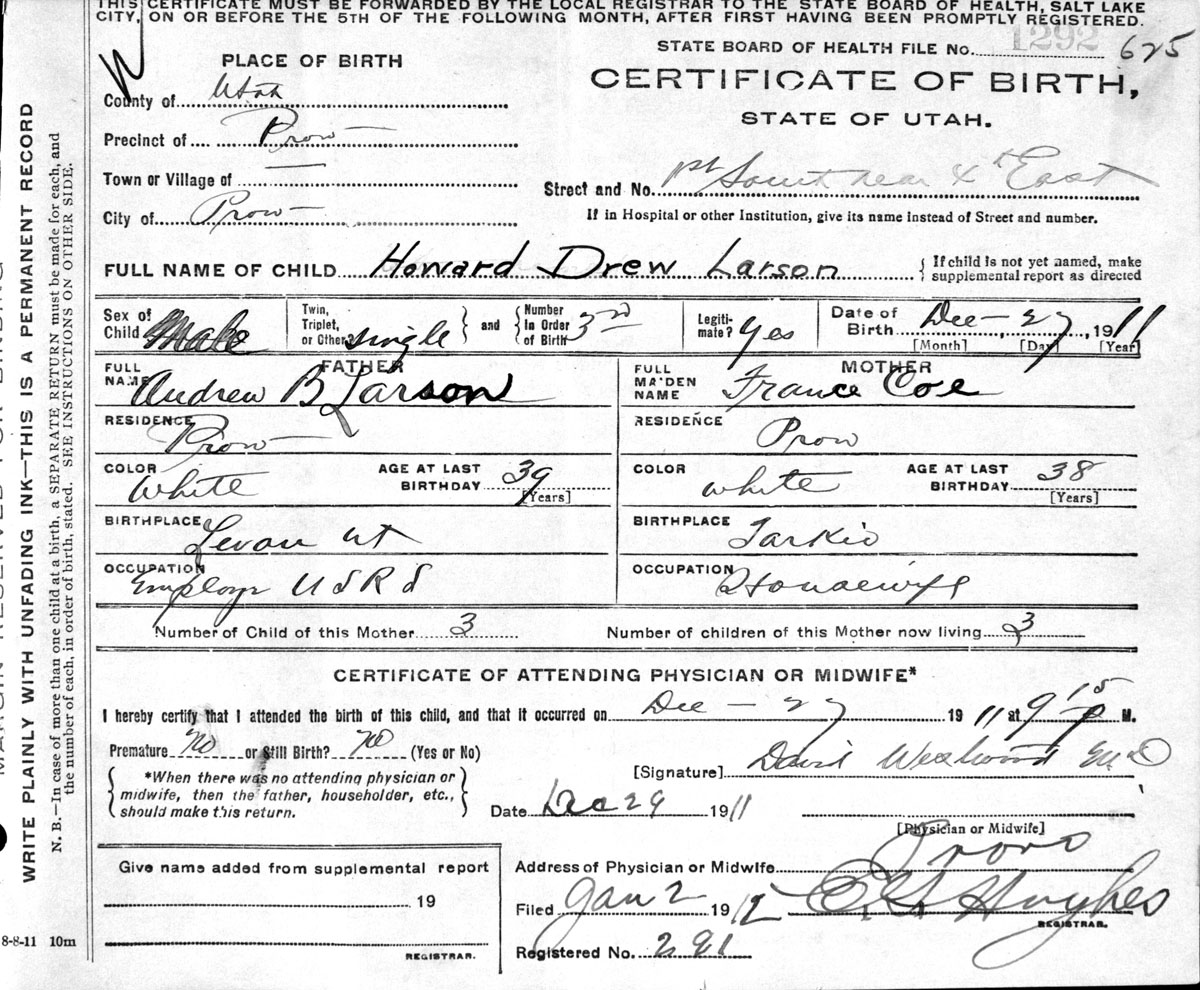 THIS CERTIFICATE MUST BE FORWARDED BY THE LOCAL REGISTRAR TO THE STATE BOARD OF HEALTH, SALT LAKE
CITY, ON OR BEFORE THE 5TH OF THE FOLLOWING MONTH, AFTER FIRST HAVING BEEN PROMPTLY REGISTERED.
STATE BOARD OF HEALTH FILE No. 1292 625
PLACE OF BIRTH
CERTIFICATE OF BIRTH,
STATE OF UTAH.
County of Utah
Precinct of Provo
Town or Village of —
Street and No. 1st South near 4th East
City of Provo
If in Hospital or other Institution, give its name instead of Street and number.
FULL NAME OF CHILD Howard Drew Larson { If child is not yet named, make supplemental report as directed
Sex of Child Male
Twin, Triplet, or Other? single } and { Number In Order of Birth 3rd
Legiti-mate? yes
Date of Birth Dec - 27, 1911
[Month] [Day] [Year]
FATHER
FULL NAME Andrew B Larson
MOTHER
FULL MAIDEN NAME France Coe
RESIDENCE Provo
RESIDENCE Provo
COLOR White AGE AT LAST BIRTHDAY 39 [Years]
COLOR white AGE AT LAST BIRTHDAY 38 [Years]
BIRTHPLACE Levan ut
BIRTHPLACE Tarkio
OCCUPATION Employ U S R S
OCCUPATION Housewife
Number of Child of this Mother 3
Number of children of this Mother now living 3
CERTIFICATE OF ATTENDING PHYSICIAN OR MIDWIFE*
I hereby certify that I attended the birth of this child, and that it occurred on Dec - 27 1911 at 9 15 P M.
Premature No or Still Birth? No (Yes or No)
[Signature] David Westwood M D
{ *When there was no attending physician or midwife, then the father, householder, etc., should make this return. }
Date Dec 29 1911
[Physician or Midwife]
Address of Physician or Midwife Provo
Filed Jan 2 1912 Hughes
REGISTRAR.
Registered No. 291
Give name added from supplemental report
19
REGISTRAR.
8-8-11 10m
WRITE PLAINLY WITH UNFADING INK—THIS IS A PERMANENT RECORD
N. B.—In case of more than one child at a birth, a SEPARATE RETURN must be made for each, and
the number of each, in order of birth, stated. SEE INSTRUCTIONS ON OTHER SIDE.